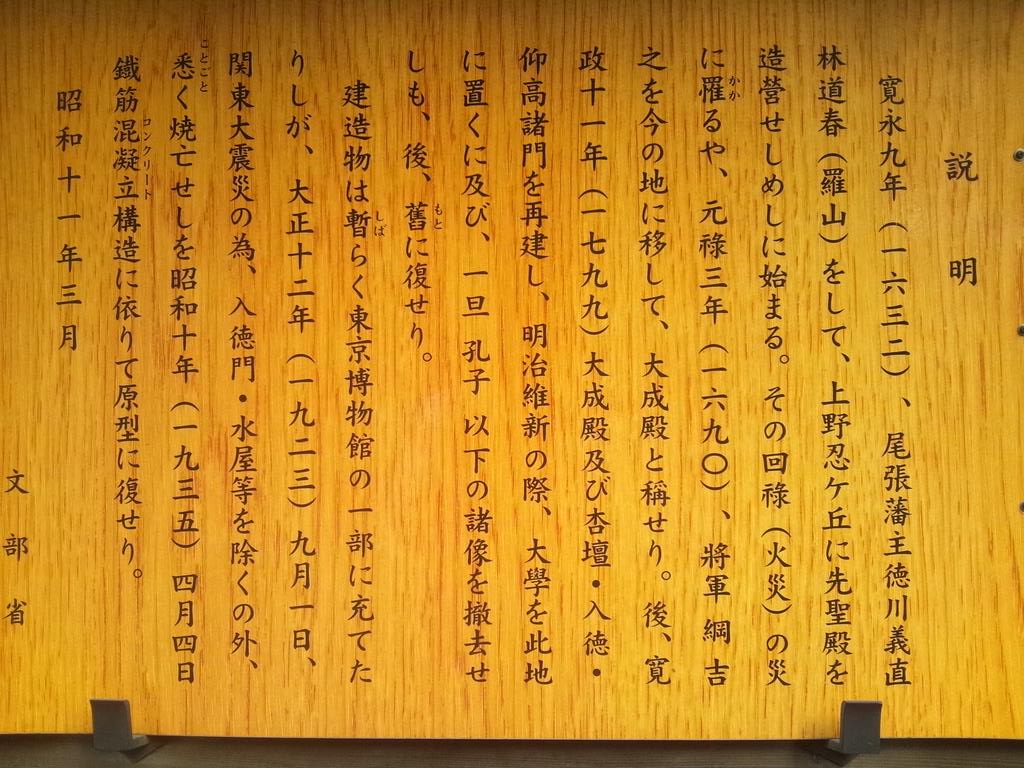 説明
寛永九年(一六三二)、尾張藩主徳川義直
林道春(羅山)をして、上野忍ケ丘に先聖殿を
造營せしめしに始まる。その回祿(火災)の災
に罹るや、元祿三年(一六九〇)、將軍 綱吉
之を今の地に移して、大成殿と稱せり。後、寛
政十一年(一七九九)大成殿及び杏壇・入徳・
仰高諸門を再建し、明治維新の際、大學を此地
に置くに及び、一旦 孔子 以下の諸像を撤去せ
しも、後、舊に復せり。
建造物は暫らく東京博物館の一部に充てた
りしが、大正十二年(一九二三)九月一日、
関東大震災の為、入徳門・水屋等を除くの外、
悉く焼亡せしを昭和十年(一九三五)四月四日
鐵筋混凝立構造に依りて原型に復せり。
昭和十一年三月
文部省
かか
もと
しば
ことごと
コンクリート